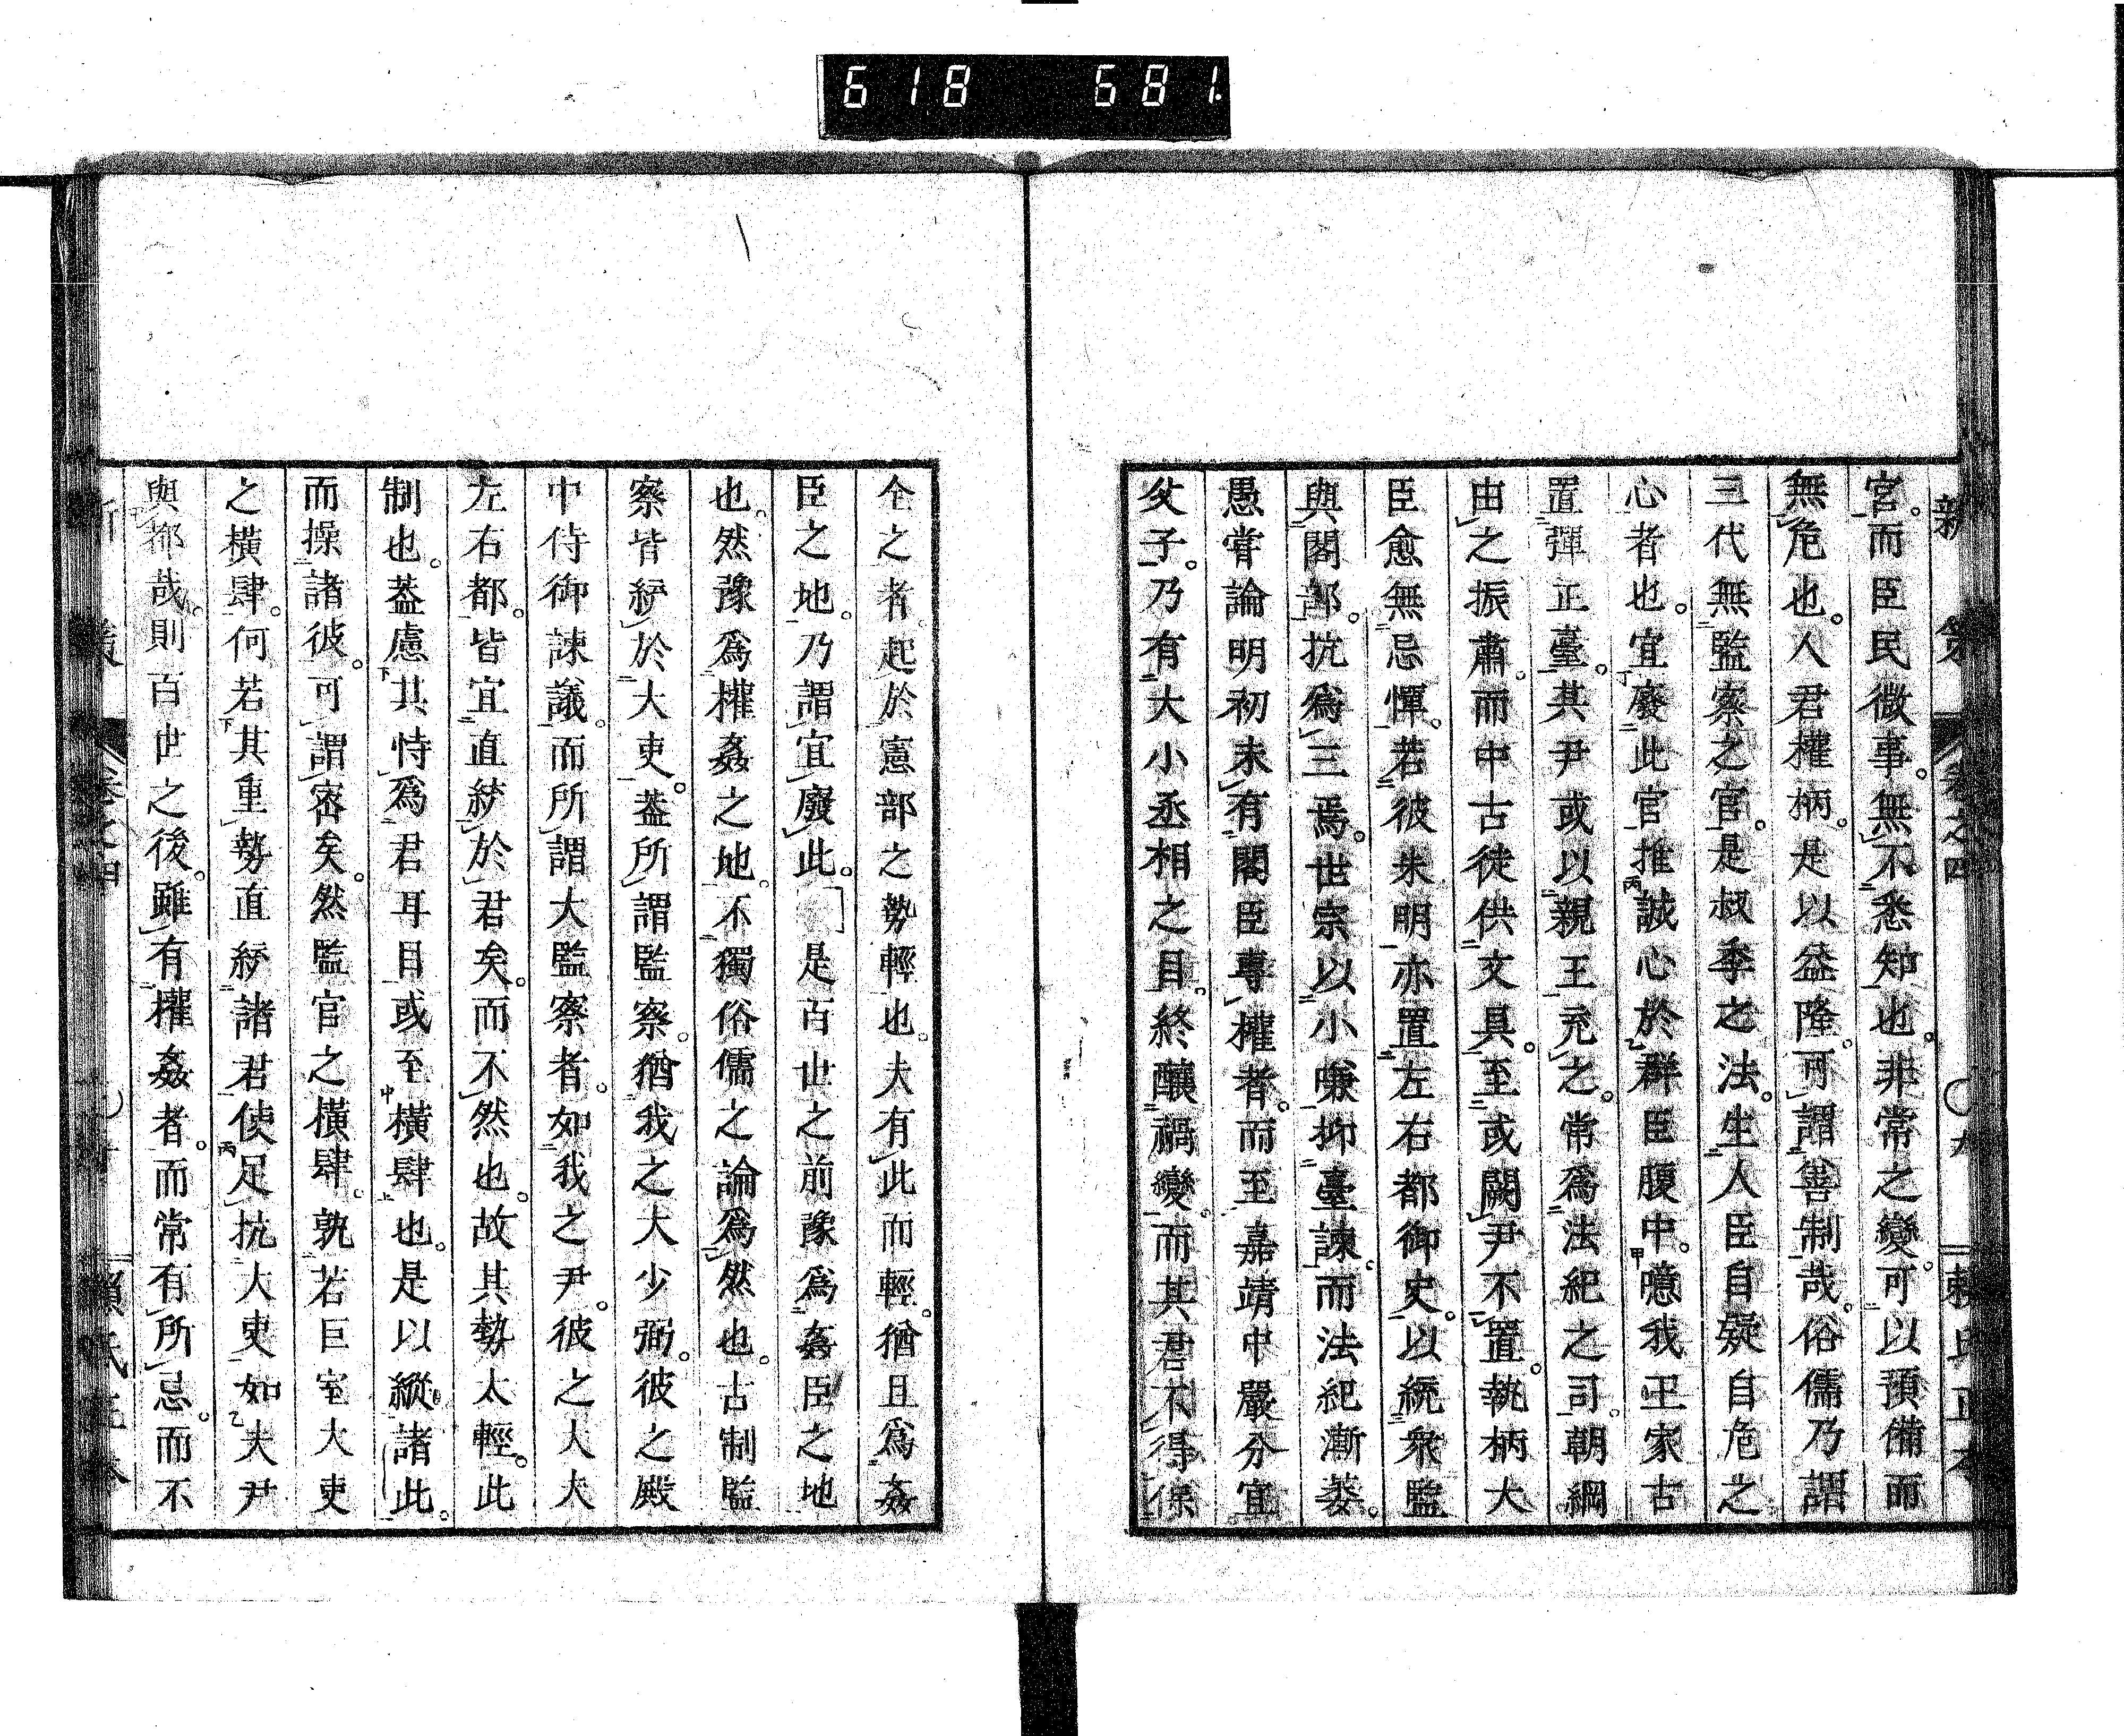 618 681
新策 卷之四 ○九 頼氏正本
官。而臣民微事。無不悉知也。非常之變。可以預備而
無危也。人君權柄。是以益隆。可謂善制哉。俗儒乃謂
三代無監察之官。是叔季之法。生人臣自疑自危之
心者也。宜廢此官推誠心於群臣腹中。噫我王家古
置彈正臺。其尹或以親王充之。常爲法紀之司。朝綱
由之振肅。而中古徒供文具。至或闕尹不置。執柄大
臣愈無忌憚。若彼朱明亦置左右都御史。以統衆監
與閣部。抗爲三焉。世宗以小嫌抑臺諫。而法紀漸蔞。
愚嘗論明初未有閣臣專權者。而至嘉靖中嚴分宜
父子。乃有大小丞相之目。終釀禍變。而其君不得保
全之者。起於憲部之勢輕也。夫有此而輕。猶且爲姦
臣之地。乃謂宜廢此。是百世之前豫爲姦臣之地
也。然豫爲權姦之地。不獨俗儒之論爲然也。古制監
察皆綍於大吏。葢所謂監察。猶我之大少弼。彼之殿
中侍御諫議。而所謂大監察者。如我之尹。彼之大夫
左右都。皆宜直綍於君矣。而不然也。故其勢太輕。此
制也。葢慮其恃爲君耳目或至橫肆也。是以縱諸此。
而操諸彼。可謂密矣。然監官之橫肆。孰若巨室大吏
之橫肆。何若其重勢直綍諸君使足抗大吏如夫尹
與都哉。則百世之後。雖有權姦者。而常有所忌。而不